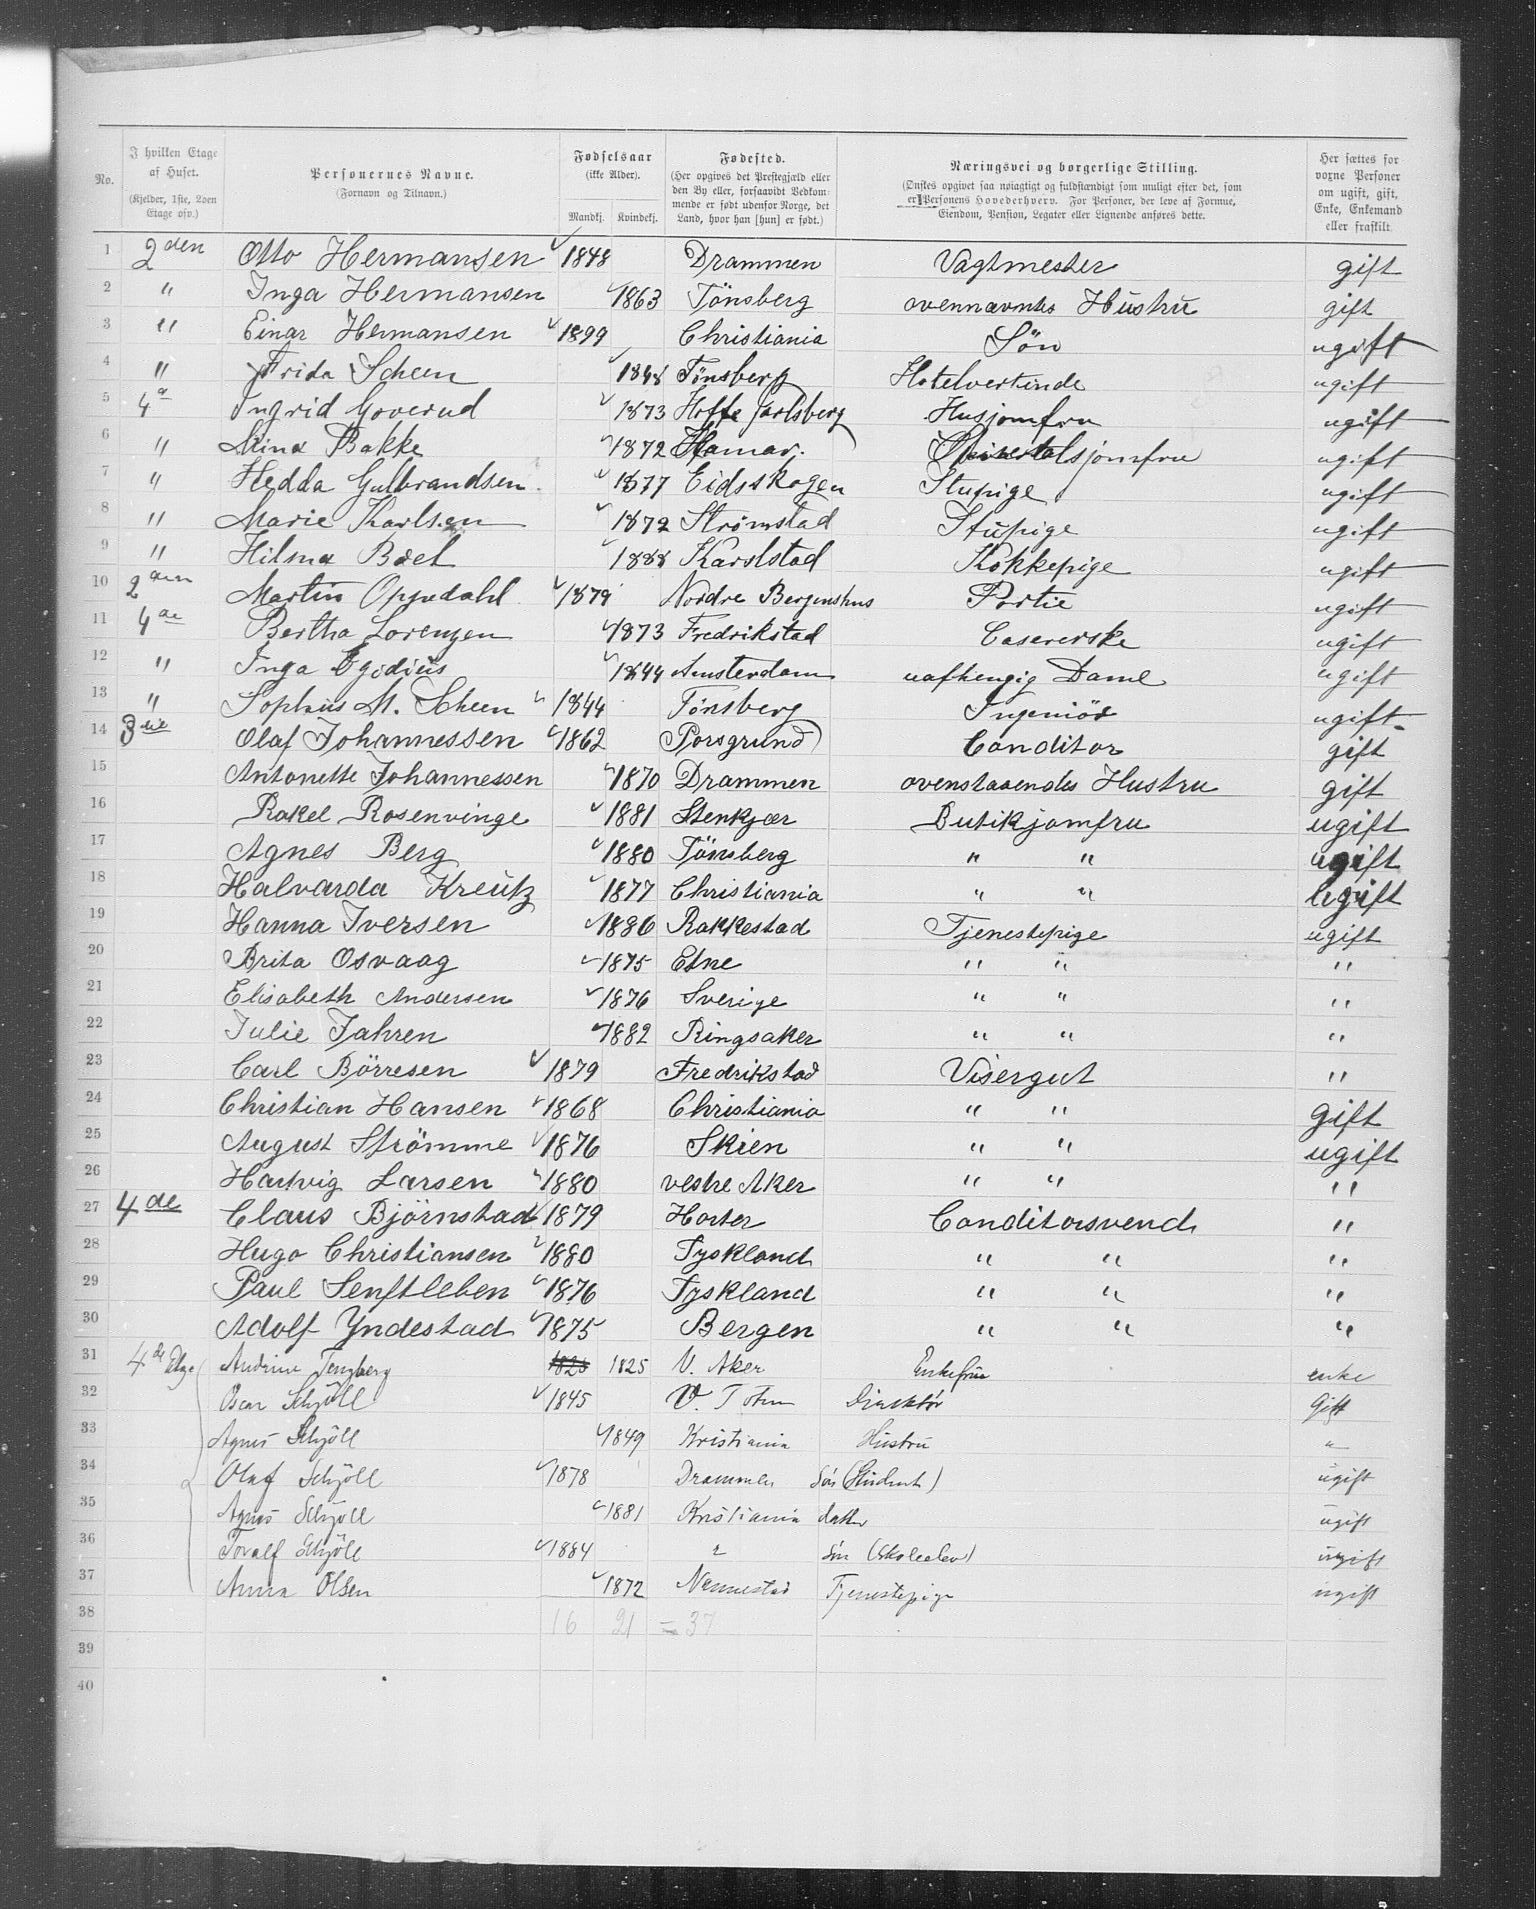 No. I hvilken Etage af Huset. (Kjelder, 1ste, 2den Etage osv.) Personernes Navne. (Fornavn og Tilnavn.) Fødselsaar (ikke Alder). Mandkj. Kvindekj. Fødested. (Her opgives det Prestegjæld eller den By eller, forsaavidt Vedkommende er født udenfor Norge, det Land, hvor han [hun] er født.) Næringsvei og borgerlige Stilling. (Ønskes opgivet saa nøiagtigt og fuldstændigt som muligt efter det, som er Personens Hovederhverv. For Personer, der leve af Formue, Eiendom, Pension, Legater eller Lignende anføres dette. Her sættes for vorne Personer om ugift, gift, Enke, Enkemand eller fraskilt.
1 2den Otto Hermansen 1848 Drammen Vagtmester gift
2 " Inga Hermansen 1863 Tönsberg ovennævntes Hustru gift
3 " Einar Hermansen 1899 Christiania Sön ugift
4 " Frida Scheen 1848 Tönsberg Hotelvertinde ugift
5 4a Ingrid Goverud 1873 Hoffe Jarlsberg Husjomfru ugift
6 " Mina Bakke 1872 Hamar. ugift
7 " Hedda Gulbrandsen 1877 Eidsskogen Stupige ugift
8 " Marie Karlsen 1872 Strömstad Stupige ugift
9 " Hilma Boel 1888 Karlstad Kokkepige ugift
10 2den Martin Opdahl 1879 Nordre Bergenshus Portie ugift
11 4de Bertha Lorenzen 1873 Fredrikstad Casererske ugift
12 " Inga Egidius 1844 Amsterdam uafhengig Dame ugift
13 " Sophus M. Scheen 1844 Tönsberg Ingeniör ugift
14 3die Olaf Johannessen 1862 Porsgrund Conditor gift
15 Antonette Johannessen 1870 Drammen ovenstaaendes Hustru gift
16 Rakel Rosenvinge 1881 Stenkjær Butikjomfru ugift
17 Agnes Berg 1880 Tönsberg " " ugift
18 Halvarda Kreutz 1877 Christiania " " ugift
19 Hanna Iversen 1886 Rakkestad Tjenestepige ugift
20 Brita Osvaag 1875 Etne " " "
21 Elisabeth Andersen 1876 Sverige " " "
22 Julie Jahren 1882 Ringsaker " " "
23 Carl Börresen 1879 Fredrikstad Visergut "
24 Christian Hansen 1868 Christiania " " gift
25 August Strömme 1876 Skien " " ugift
26 Hartvig Larsen 1880 vestre Aker " " "
27 4de Claus Björnstad 1879 Horten Conditorsvend "
28 Hugo Christiansen 1880 Tyskland " " "
29 Paul Senftleben 1876 Tyskland " " "
30 Adolf Yndestad 1875 Bergen " " "
31 4de Etage Andrine Tengberg 1825 1825 V. Aker Enkefrue enke
32 Oscar Schjöll 1845 V. Toten Direktör Gift
33 Agnes Schjöll 1849 Kristiania Hustru "
34 Olaf Schjöll 1878 Drammen Sön (Student) ugift
35 Agnes Schjöll 1881 Kristiania datter ugift
36 Toralf Schjöll 1884 " Sön (skoleelev) ugift
37 Anna Olsen 1872 Nannestad Tjenestepige ugift
38 16 21 = 37
39
40